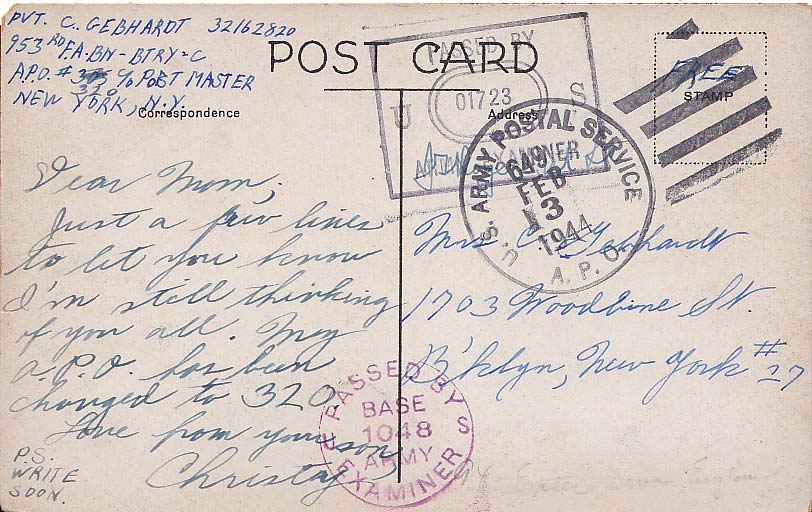 PVT. C. GEBHARDT 32162820
953RD F.A-BN-BTRY-C
A.P.O. # 305 c/o POST MASTER
320
NEW YORK, N.Y.
POST CARD
Correspondence
Address
FREE
STAMP
PASSED BY
U 01723 S
ARMY EXAMINER
U.S. ARMY POSTAL SERVICE
649
FEB
13
1944
A.P.O.
Dear Mom,
Just a few lines
to let you know
I'm still thinking
of you all. My
A.P.O. has been
changed to 320.
Love from your son
Christy
P.S.
WRITE
SOON.
Mrs C. Gebhardt
1703 Woodbine St.
B'klyn, New York #27
PASSED BY
U BASE S
1048
ARMY
EXAMINER
Exeter, Devon